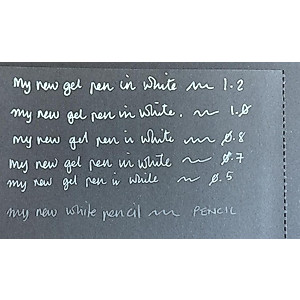 My new gel pen in white ~ 1.2
my new gel pen in white. ~ 1.0
my new gel pen is white ~ 0.8
My new gel pen in white ~ 0.7
my new gel pen is white ~ 0.5
my new white pencil ~ PENCIL